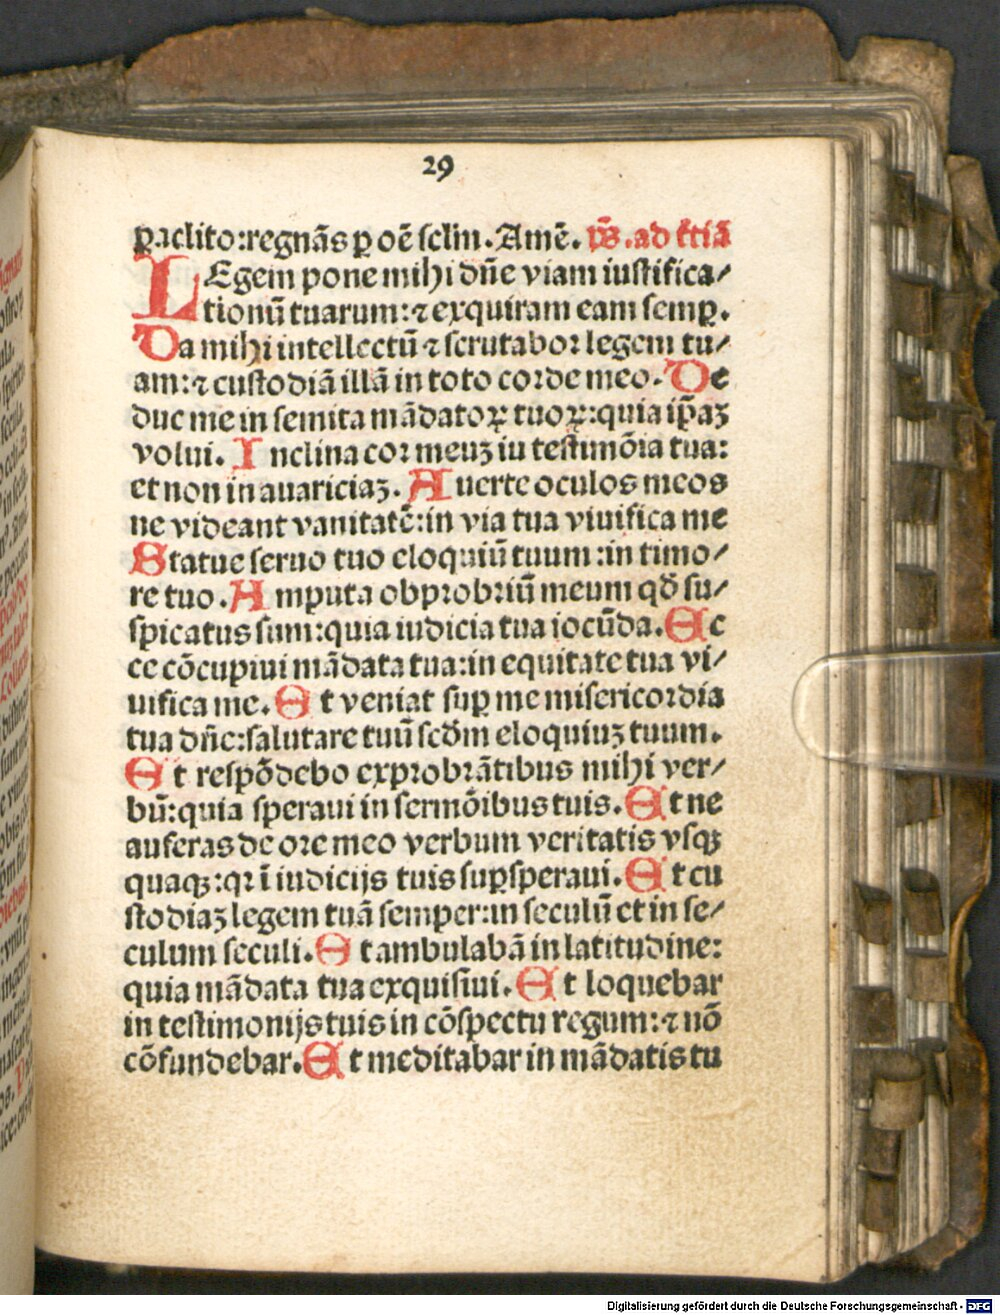 29
ꝑaclito:regnãs ꝑ oẽ sclm. Amẽ. p̃s. ad t̃tiã
LEgem pone mihi dñe viam iustifica/
tionũ tuarum: ⁊ exquiram eam semꝑ.
Da mihi intellectũ ⁊ scrutabor legem tu/
am: ⁊ custodiã illã in toto corde meo. De
duc me in semita mãdatoꝝ tuoꝝ: quia ip̃aꝫ
volui. Inclina cor meuꝫ iu testimõia tua:
et non in auariciaꝫ. Auerte oculos meos
ne videant vanitatẽ: in via tua viuifica me
Statue seruo tuo eloquiũ tuum: in timo/
re tuo. Amputa obprobriũ meum qđ su/
spicatus sum: quia iudicia tua iocũda. Ec
ce cõcupiui mãdata tua: in equitate tua vi/
uifica me. Et veniat suꝑ me misericordia
tua dñe: salutare tuũ scđm eloquiuꝫ tuum.
Et respõdebo exprobrãtibus mihi ver/
bũ: quia speraui in sermõibus tuis. Et ne
auferas de ore meo verbum veritatis vsqꝫ
quaqꝫ: qꝛ ĩ iudicijs tuis suꝑsperaui. Et cu
stodiaꝫ legem tuã semper: in seculũ et in se/
culum seculi. Et ambulabã in latitudine:
quia mãdata tua exquisiui. Et loquebar
in testimonijs tuis in cõspectu regum: ⁊ nõ
cõfundebar. Et meditabar in mãdatis tu
Digitalisierung gefördert durch die Deutsche Forschungsgemeinschaft - DFG